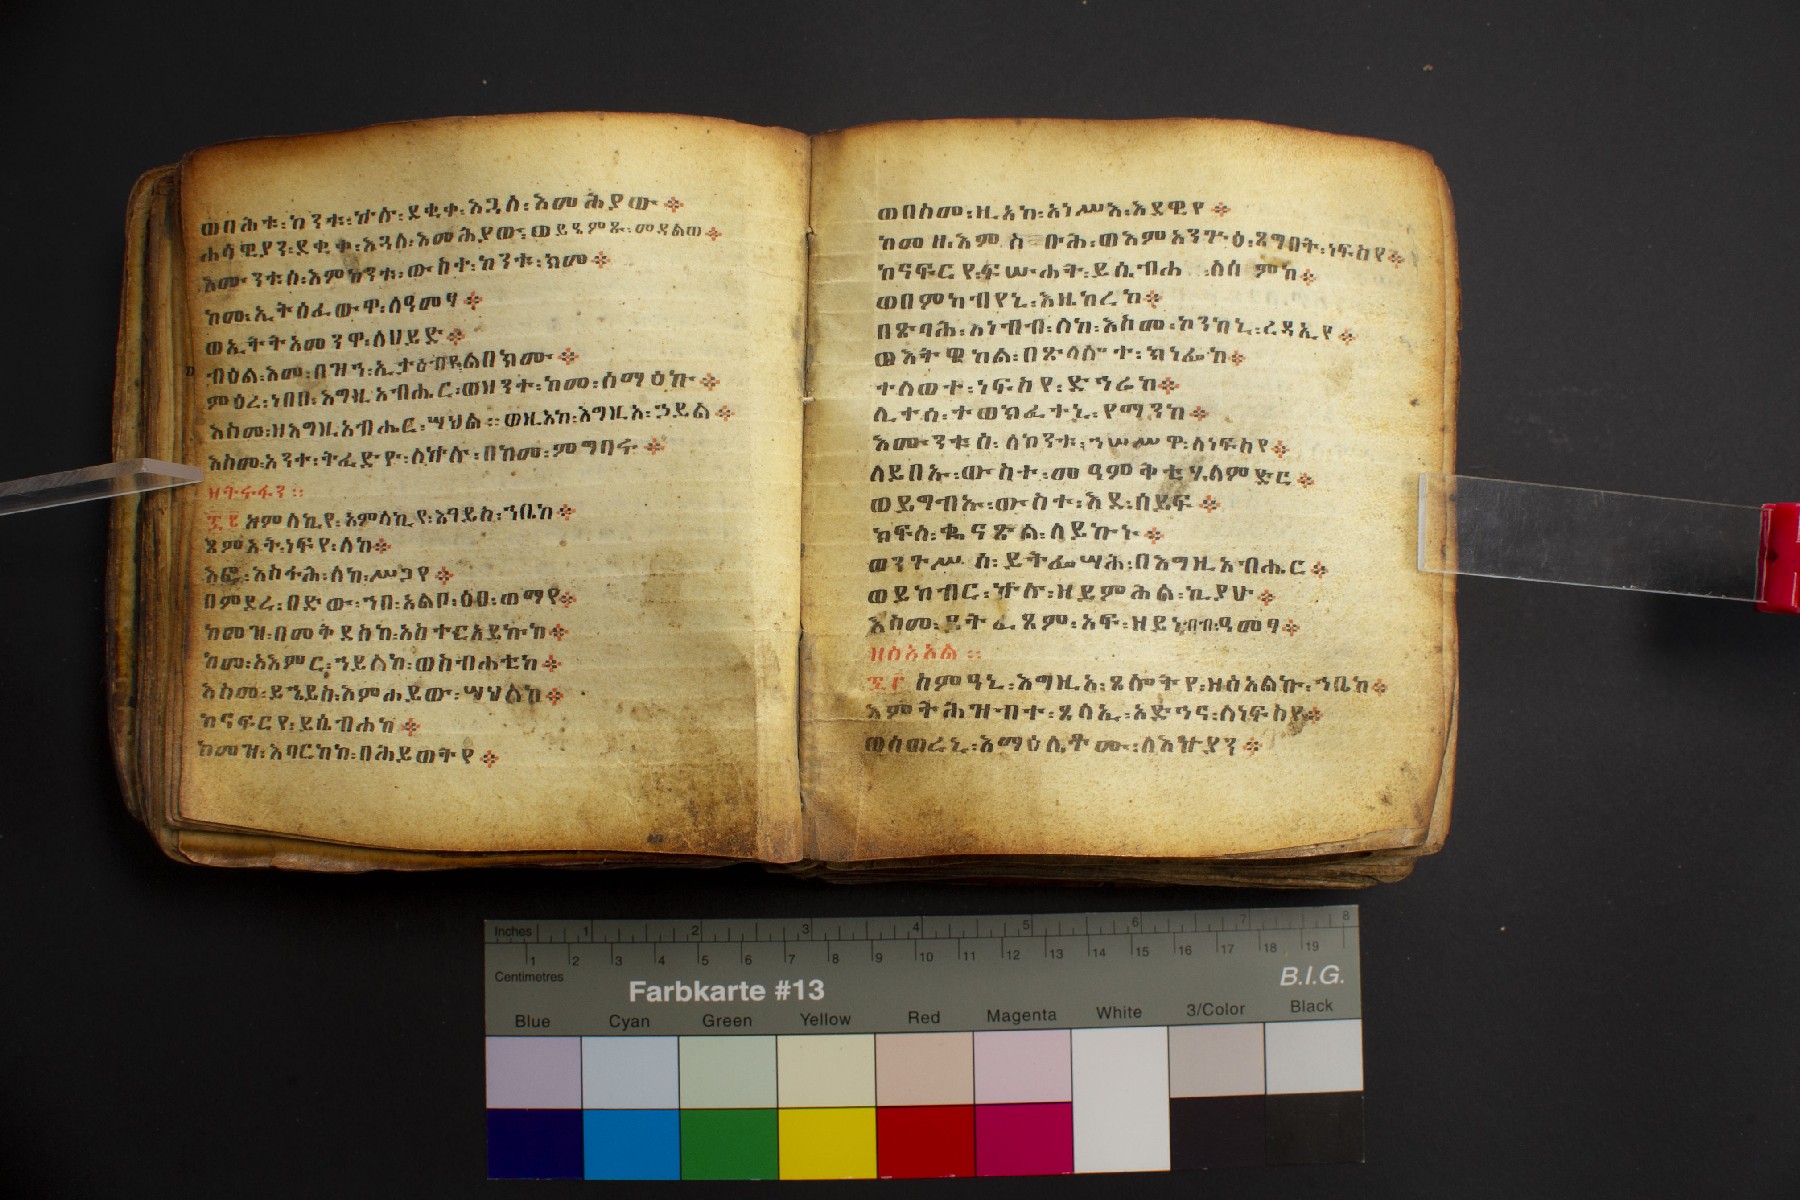 ወባሕቱ፡ ከንቱ፡ ኵሉ፡ ደቂቀ፡ እጓለ፡ እመሕያው ፨
ሐሳዊያን፡ ደቂቀ፡ እጓለ፡ እመሕያው፡ ወይዔምፁ፡ መዳልወ ፨
እሙንቱሰ፡ እምከንቱ፡ ውስተ፡ ከንቱ፡ ክመ ፨
ከመ፡ ኢትሰፈውዋ፡ ለዓመፃ ፨
ወኢትትአመንዋ፡ ለሀይድ ፨
ብዕል፡ እመ፡ በዝኀ፡
ምዕረ፡ ነበበ፡ እግዚአብሔር፡ ወዘንተ፡ ከመ፡ ሰማዕኩ ፨
እስመ፡ ዘእግዚአብሔር፡ ሣህል። ወዚአከ፡ እግዚአ፡ ኃይል ፨
እስመ፡ አንተ፡ ትፈድዮ፡ ለኵሉ፡ በከመ፡ ምግባሩ ፨
ዘትሩፋን ።
፷፪ አምላኪየ፡ አምላኪየ፡ እገይስ፡ ኀቤከ ፨
ጸምአት፡ ነፍየ፡ ለከ ፨
እፎ፡ እስፋሕ፡ ለከ፡ ሥጋየ ፨
በምድረ፡ በድው፡ ኀበ፡ አልቦ፡ ዕፀ፡ ወማየ ፨
ከመዝ፡ በመቅደስከ፡ አስተርአይኩከ ፨
ከመ፡ አእምር፡ ኀይለከ፡ ወስብሐቲከ ፨
እስመ፡ ይኄይስ፡ እምሐይው፡ ሣህልከ ፨
ከናፍርየ፡ ይሴብሐከ ፨
ከመዝ፡ እባርከከ፡ በሕይወትየ ፨
ወበስመ፡ ዚአከ፡ አነሥእ፡ እደዊየ ፨
ከመ ዘ፡ እም ስብሕ፡ ወእምአንጕዕ፡ ጸግበት፡ ነፍስየ ፨
ከናፍርየ፡ ፍሡሐት፡ ይሴብሐ ለስምከ ፨
ወበምስካብየኒ፡ እዜከረከ ፨
በጽባሕ፡ አነብብ፡ ለከ፡ እስመ፡ ኮንከኒ፡ ረዳኢየ ፨
ወእትዌከል፡ በጽላሎተ፡ ክነፊከ ፨
ተለወተ፡ ነፍስየ፡ ድኀሬከ ፨
ሊተሰ፡ ተወክፈተኒ፡ የማንከ ፨
እሙንቱሰ፡ ለከንቱ፡ ኀሠሥዋ፡ ለነፍስየ ፨
ለይበኡ፡ ውስተ፡ መዓምቅቲሃ ለምድር ፨
ወይግብኡ፡ ውስተ፡ እደ፡ ሰይፍ ፨
ክፍለ፡ ቈናጽል፡ ለይኩኑ ፨
ወንጉሥሰ፡ ይትፌሣሕ፡ በእግዚአብሔር ፨
ወይከብር፡ ኵሉ፡ ዘይምሕል፡ ኪያሁ ፨
እስመ፡ ይትፈጸም፡ አፍ፡ ዘይነብብ፡ ዓመፃ ፨
ዘሰአአል ።
፷፫ ስምዓኒ፡ እግዚአ፡ ጸሎትየ፡ ዘሰአልኩ፡ ኀቤከ ፨
እምትሕዝብተ፡ ጸላኢ፡ አድኀና፡ ለነፍስየ ፨
ወሰወረኒ፡ እማዕሌቶሙ፡ ለእኵያን ፨